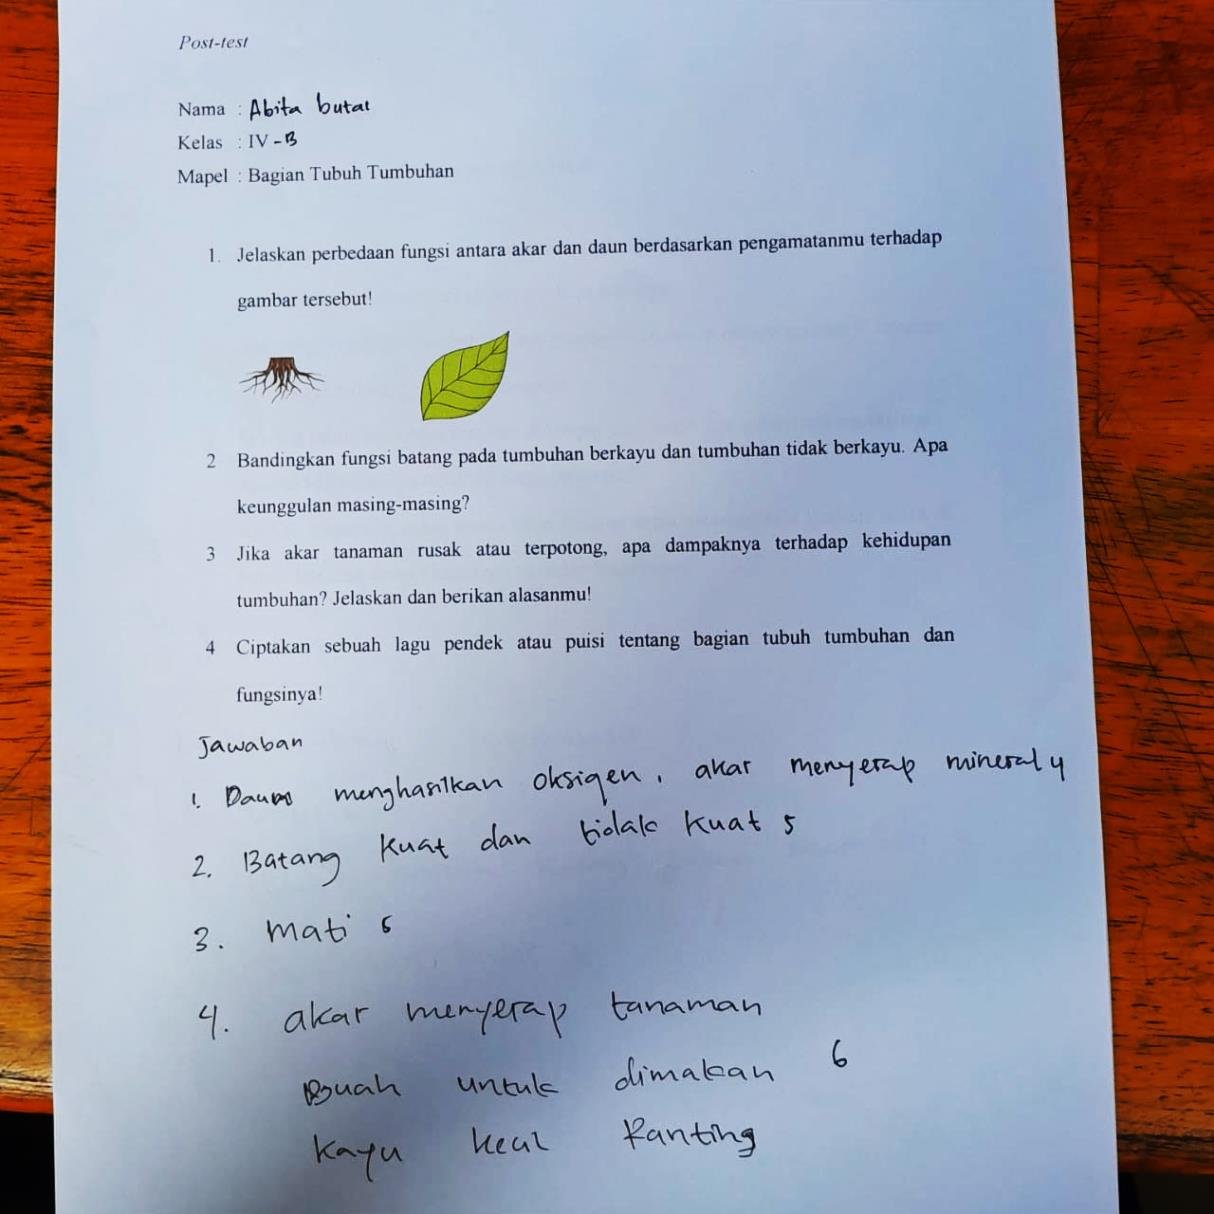 Post-test
Nama : Abita butar
Kelas : IV-B
Mapel : Bagian Tubuh Tumbuhan
1. Jelaskan perbedaan fungsi antara akar dan daun berdasarkan pengamatanmu terhadap
gambar tersebut!
2 Bandingkan fungsi batang pada tumbuhan berkayu dan tumbuhan tidak berkayu. Apa
keunggulan masing-masing?
3 Jika akar tanaman rusak atau terpotong, apa dampaknya terhadap kehidupan
tumbuhan? Jelaskan dan berikan alasanmu!
4 Ciptakan sebuah lagu pendek atau puisi tentang bagian tubuh tumbuhan dan
fungsinya!
Jawaban
1. Daun menghasilkan oksigen, akar menyerap mineral 4
2. Batang kuat dan tidak kuat 5
3. mati 6
4. akar menyerap tanaman
Buah untuk dimakan 6
kayu kecil Ranting